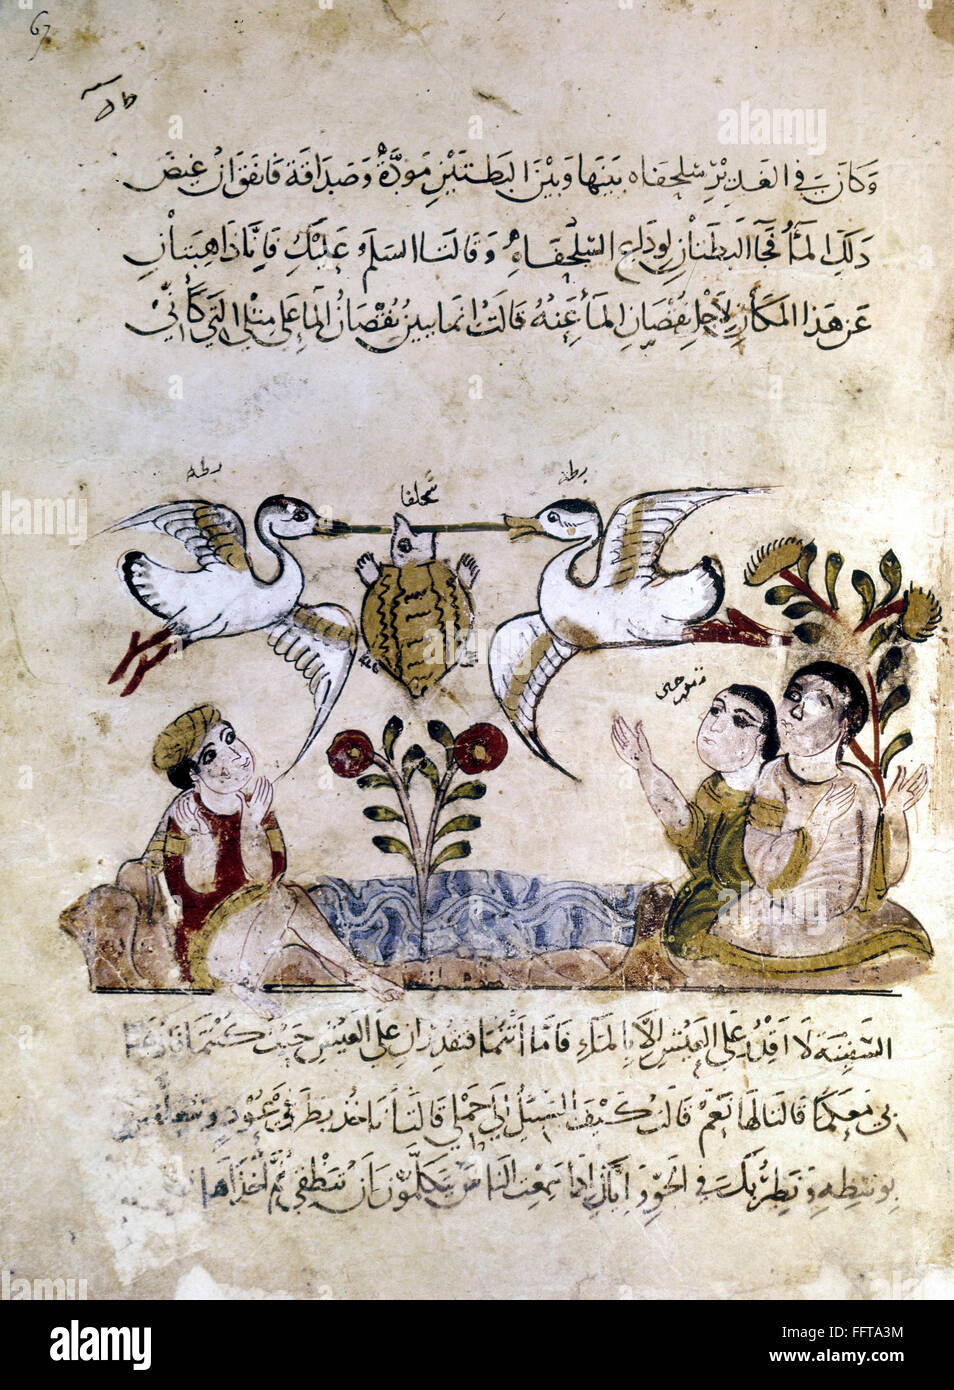 67
وكان في الغدير سلحفاه بينها وبين البطتين مودّة وصداقة فاتفق ان غيض
ذلك المآء فجآ البطتان لوداع السلحفاه وقالتا السلم عليك فإنّا ذاهبتان
عن هذا المكان لاجل نقصان المآء عنه قالت انما يبين نقصان المآ على مثلي التي كأنّي
بطه
سحلفا
بطه
السفينه لا اقدر على العيش الّا بالمآء فامّا أنتما فتقدران على العيش حيث كنتما
بي معكما قالتا لها نعم قالت كيف السبيل الى حملي قالتا ناخذ بطرفي عود
بوسطه ونطير بك في الجوّ وايّاك اذا سمعت الناس يتكلّمون ان تنطقي ثمّ اخذاها
alamy stock photo
FFTA3M
www.alamy.com